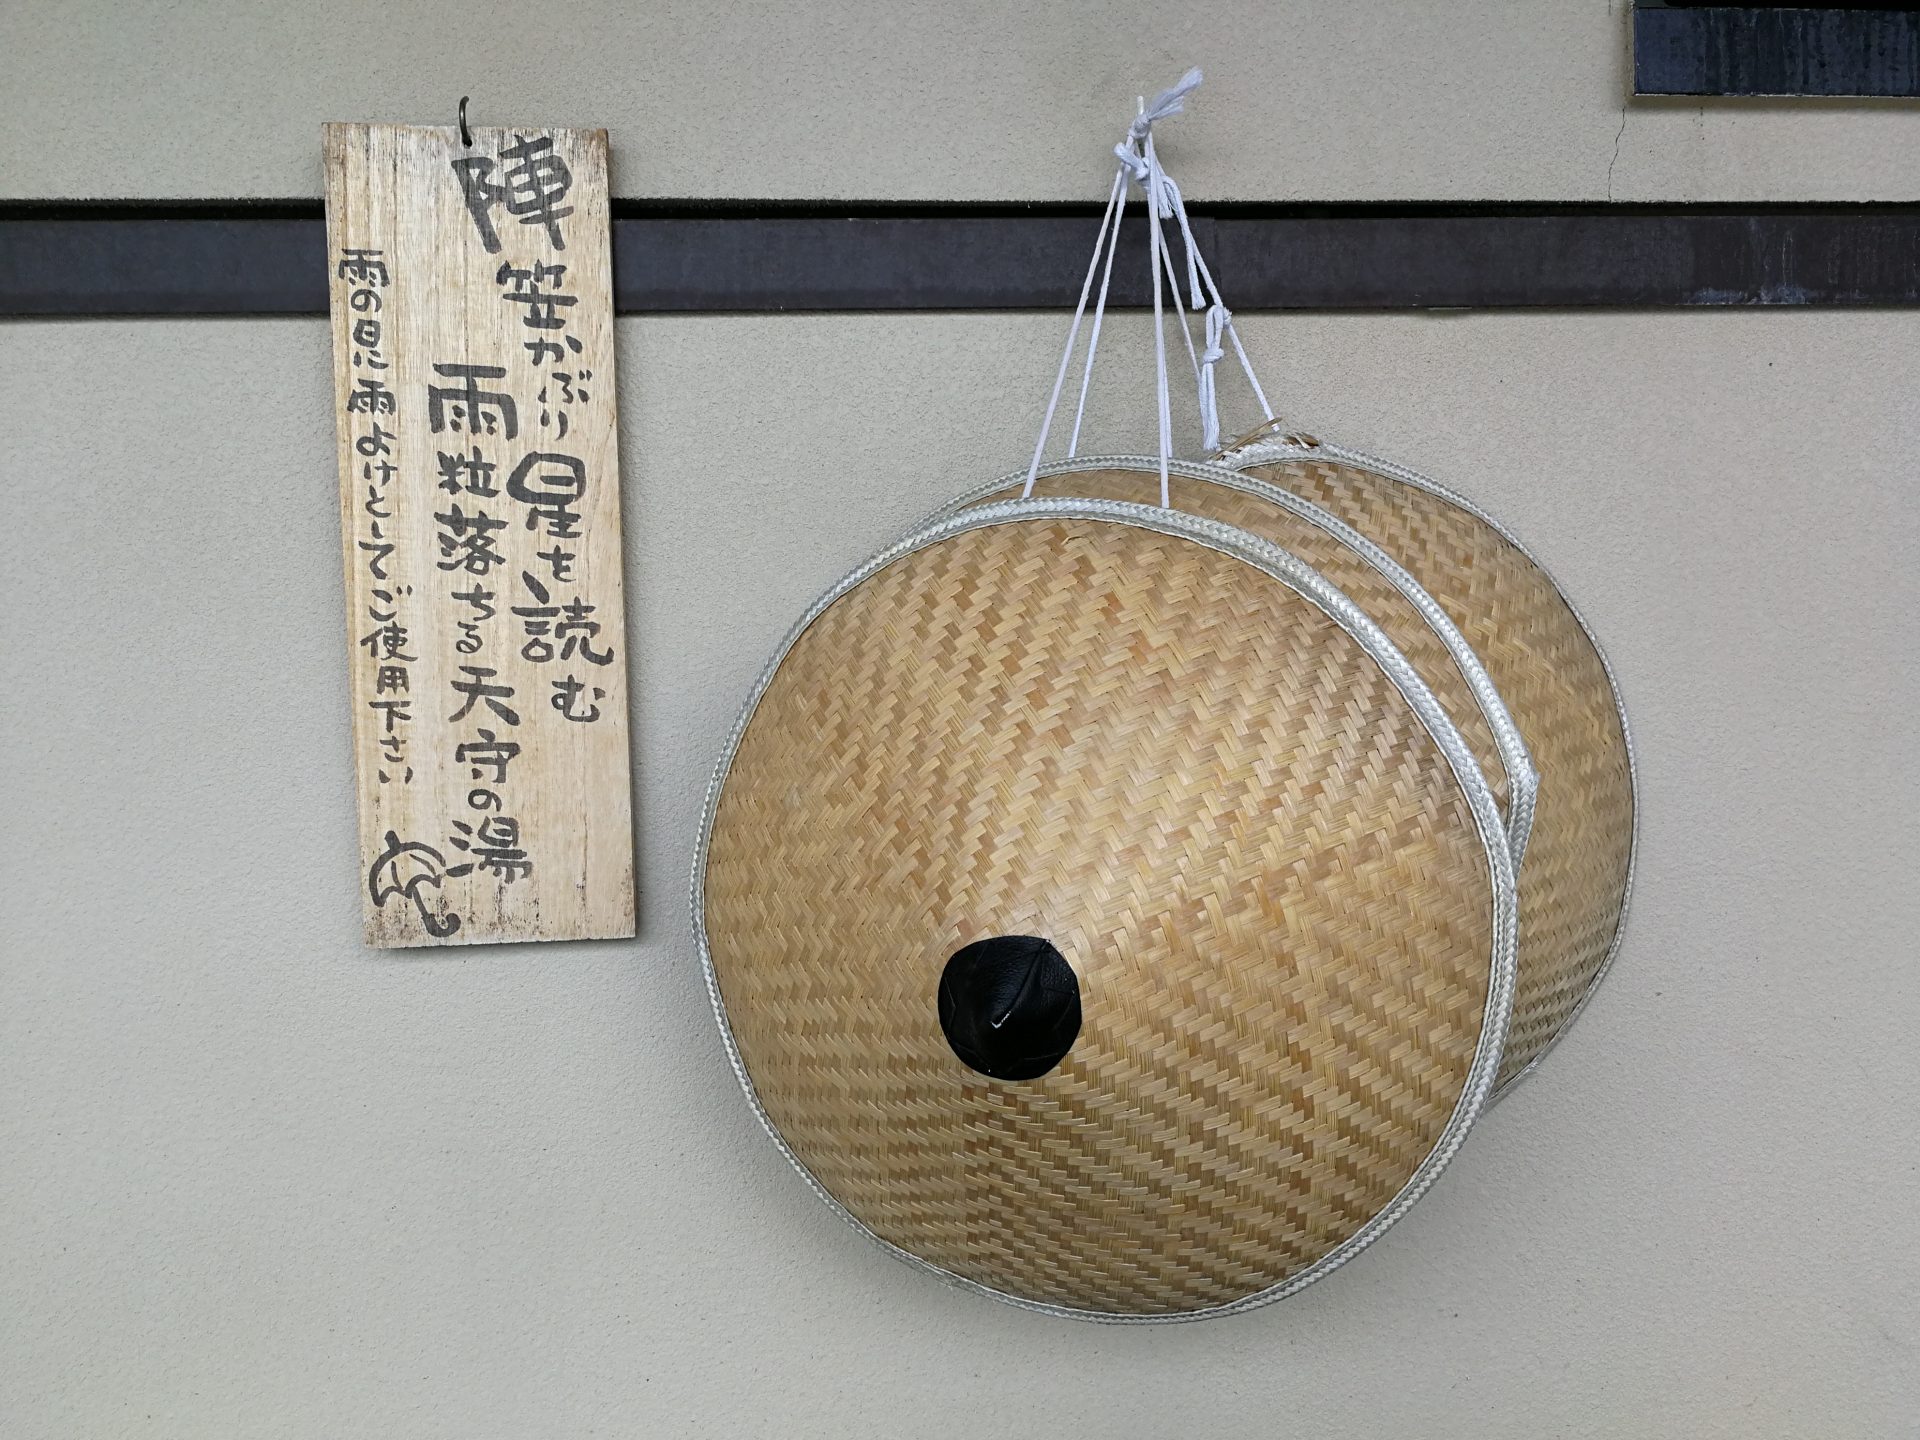 陣笠かぶり星を読む
雨粒落ちる天守の湯
雨の日に雨よけとしてご使用下さい